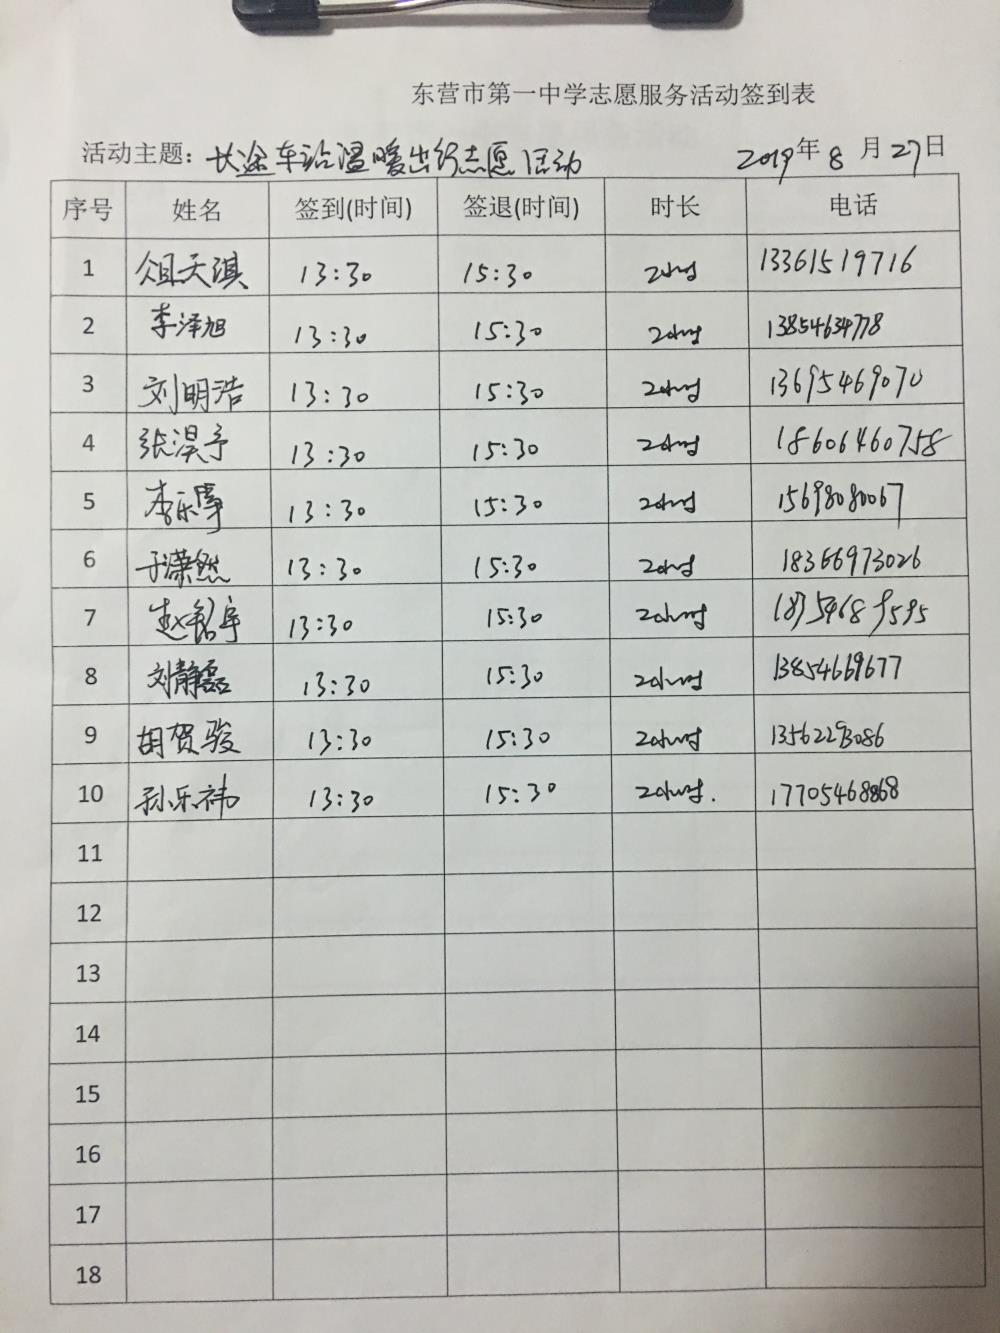 东营市第一中学志愿服务活动签到表
活动主题：长途车站温暖出行志愿活动 2019年8月27日
序号 姓名 签到(时间) 签退(时间) 时长 电话
1 俎天淇 13:30 15:30 2小时 13361519716
2 李泽旭 13:30 15:30 2小时 13854634778
3 刘明浩 13:30 15:30 2小时 13695469070
4 张淏予 13:30 15:30 2小时 18606460758
5 李乐 13:30 15:30 2小时 15698080067
6 于潇然 13:30 15:30 2小时 18366973026
7 赵铭宇 13:30 15:30 2小时
8 刘静磊 13:30 15:30 2小时 13854669677
9 胡贺骏 13:30 15:30 2小时 13562293086
10 孙乐祎 13:30 15:30 2小时. 17705468868
11
12
13
14
15
16
17
18